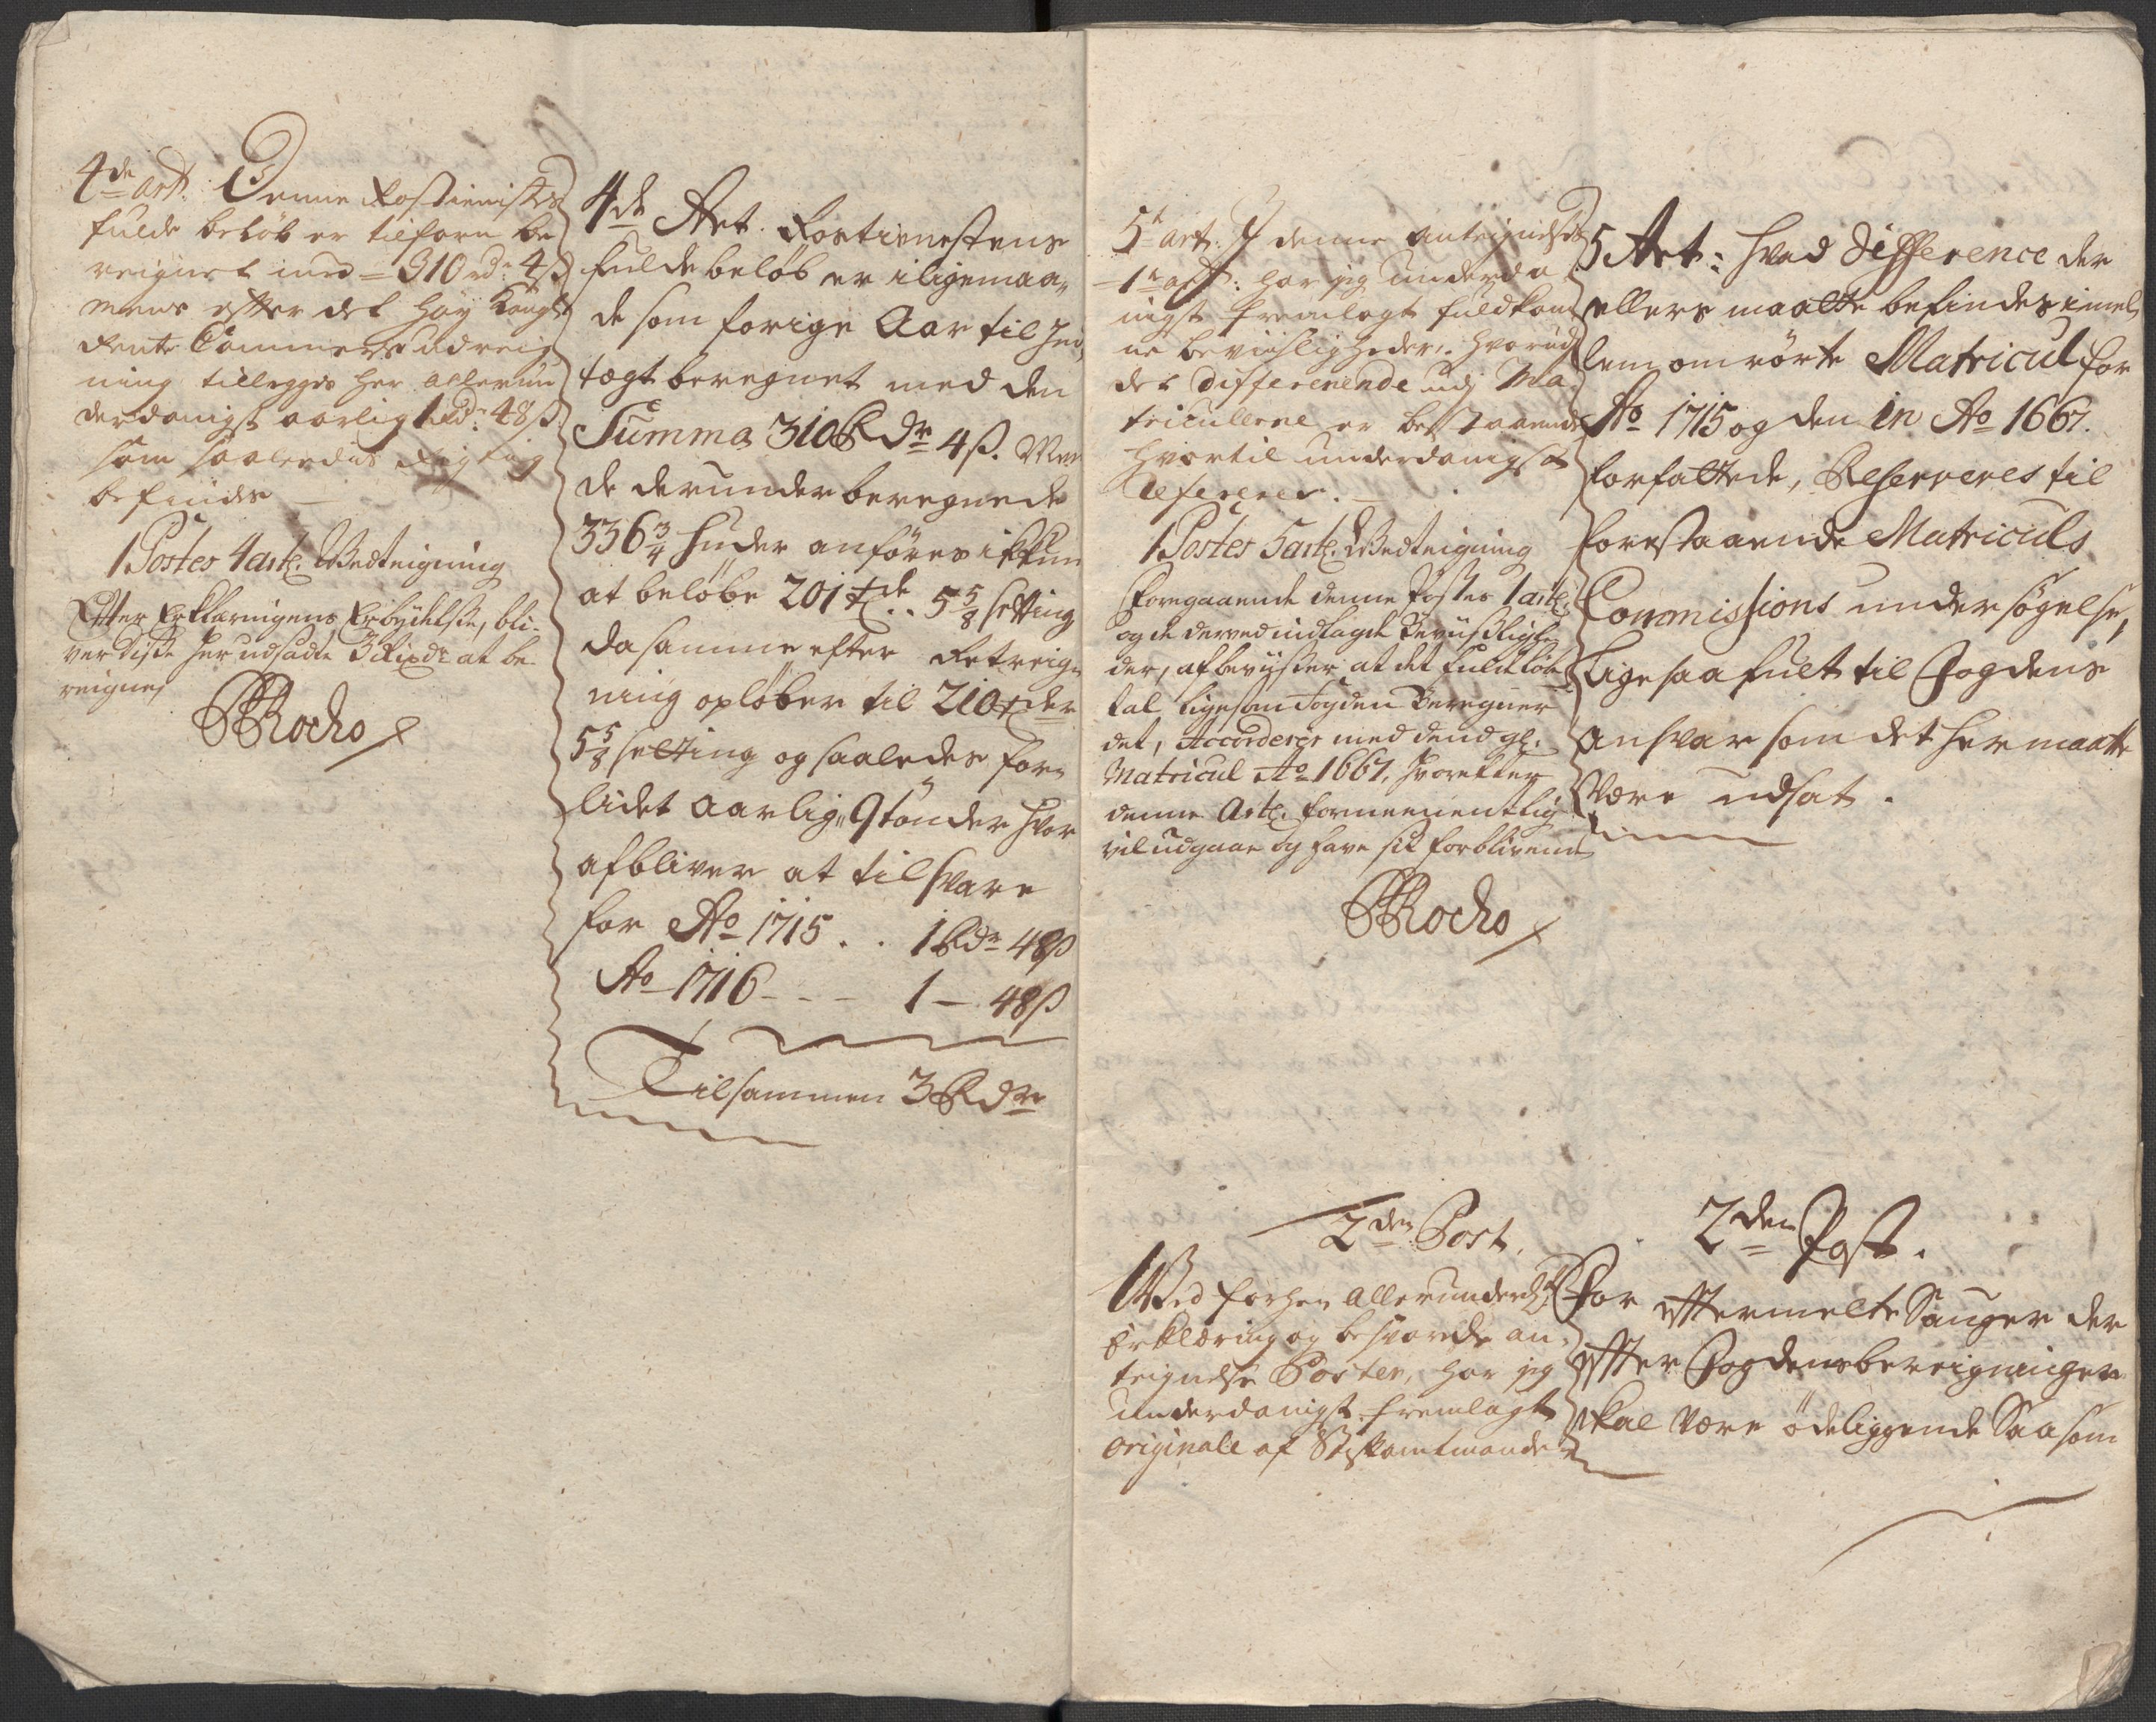 4de art: Denne Rostienistes
fulde beløb er tilforn be
reignet med = 310 rdr 4 ß
mens efter det høy Kongl:
Rente Cammers udreig
ning tillegges her allerun
derdanigst aarlig 1 Rdr: 48 ß
som saaledes rigtig
befindes
1 Postes 4 artl: Wedteigning
Efter Erklæringens Erbydelse, bli-
ver disse her udsadte 3 Rixdr at be
reignes
Rocho
4de Art. Rostienestens
fulde beløb er iligemaa„
de som forige Aar til Ind„
tægt beregnet med den
Summa 310 Rdr 4 ß. Men
de derunder beregnede
336 3/4 huder anføres ikkun
at beløbe 201 tde .. 5 5/8 setting
da samme efter Retreig„
ning opløber til 210 tder
5 5/8 setting og saaledes for„
lidet aarlig„ 9 tønder hvor
af bliver at tilsvare
for Ao 1715 . . 1 Rdr 48 ß
Ao 1716 - - - 1 - 48 ß
Tilsammen 3 Rdr
5te art: I denne anteignelses
1te art: har jeg underda
nigst fremlagt fuldkom
ne bevisligheder, hvorudj
det differerende udj Ma
triculerne er bestaaende
hvortil underdanigst
refereres.
1 Postes 5 artl: Wedteigning
Foregaaende denne Postes 1 artl:
og de derved indlagde Beviisligheder
der, afbevyser at det fulde
tal ligesom Fogden Beregner
det, Accorderer med dend gl:
Matricul Ao 1667, hvorefter
denne Artl: formeenentlig
vil udgaae og have sit forblivende
Rocho
5 Art: hvad Difference der
ellers maatte befindes imel
lem omrørte Matricul for
Ao 1715 og den in Ao 1667.
forfattede, Reserveres til
forestaaende Matriculs
Commissions undersøgelse,
ligesaa fult til Fogdens
ansvar som det her maatte
være udsat.
2den Post.
Wed forhen allerunderdst:
Erklæring og besvarede an„
teignelse Poster, har jeg
underdanigst fremlagt
originale af Stiftamtmande
2den Post.
For eftermelte Sauger der
efter Fogdens bereigninger
skal være ødeliggende Saasom